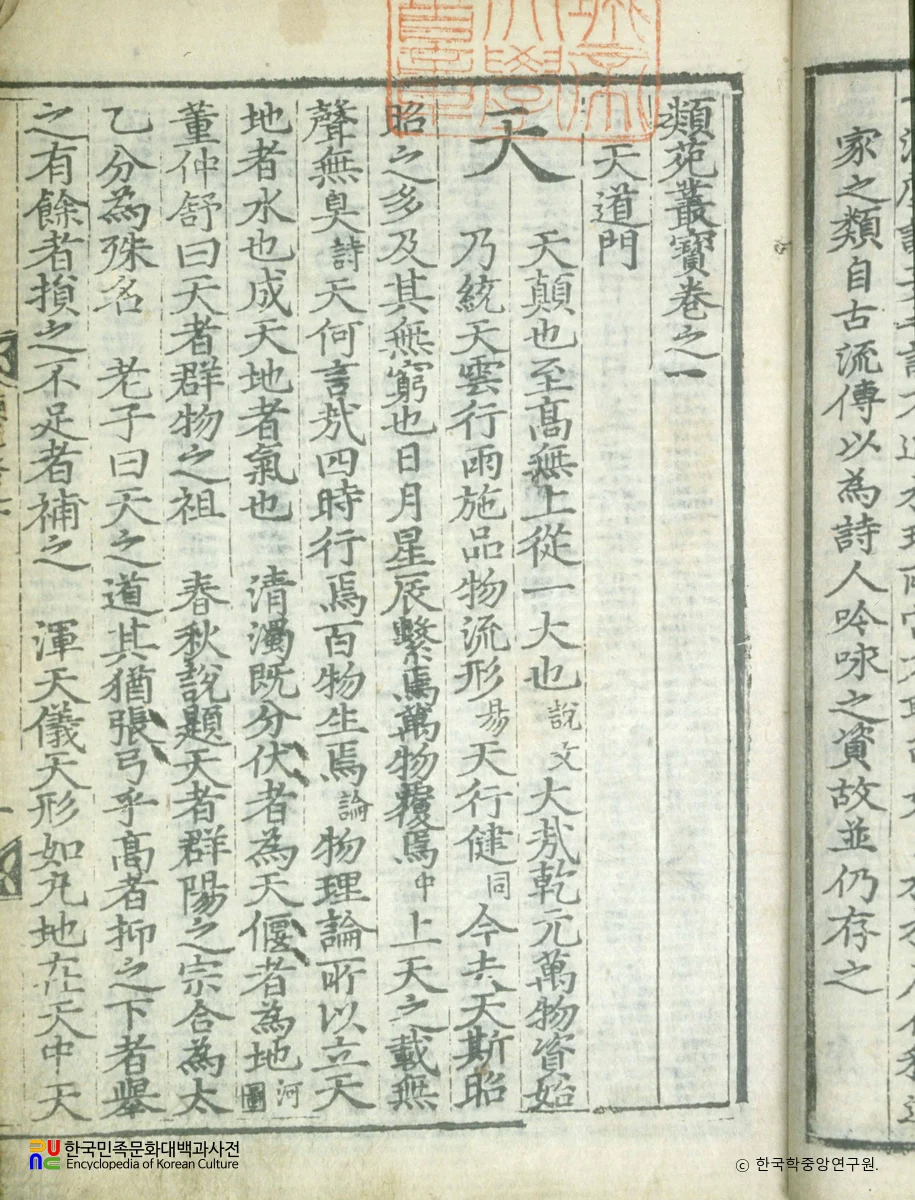 家之類自古流傳以為詩人吟咏之資故並仍存之
類苑叢寶卷之一
天道門
天
天顛也至髙無上從一大也說文大㢤乾元萬物資始
乃統天雲行雨施品物流形易天行健同今夫天斯昭
昭之多及其無窮也日月星辰繫焉萬物覆焉中上天之載無
聲無臭詩天何言㢤四時行焉百物生焉論物理論所以立天
地者水也成天地者氣也 清濁既分伏者為天偃者為地河圖
董仲舒曰天者群物之祖 春秋說題天者群陽之宗合為太
乙分為殊名 老子曰天之道其猶張弓乎髙者抑之下者舉
之有餘者損之不足者補之 渾天儀天形如丸地在天中天
한국민족문화대백과사전
Encyclopedia of Korean Culture
ⓒ 한국학중앙연구원.